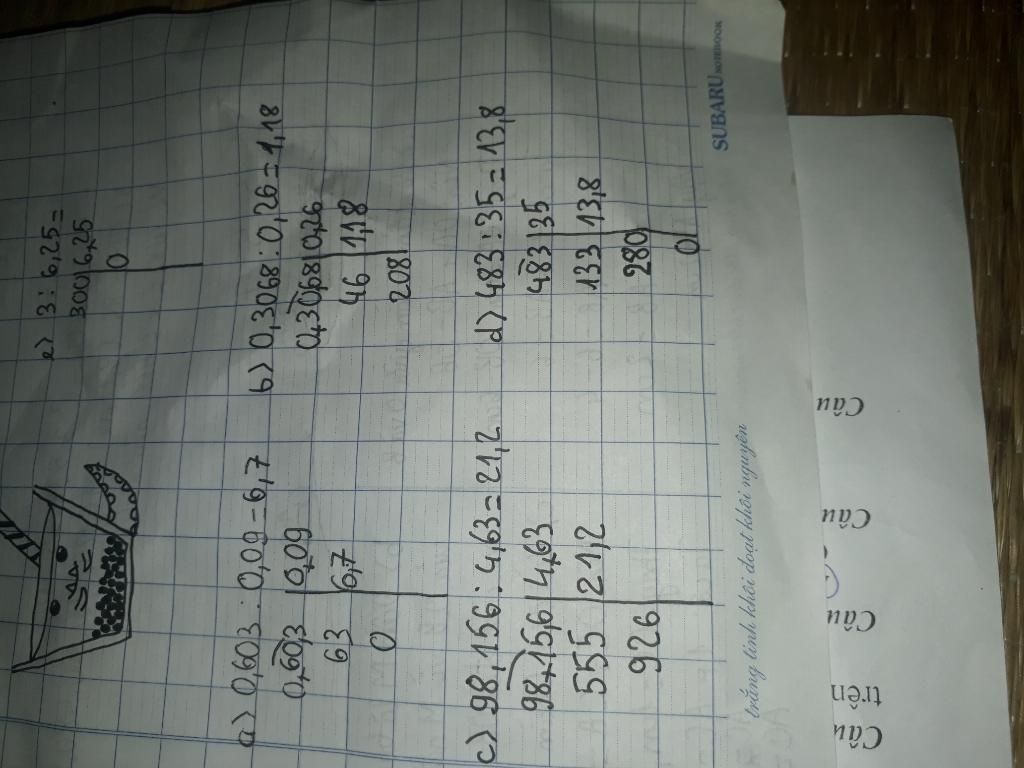 e) 3 : 6,25 =
300 6,25
0
a) 0,603 : 0,09 = 6,7
0,603 0,09
63 6,7
0
b) 0,3068 : 0,26 = 1,18
0,3068 0,26
46 1,18
208
c) 98,156 : 4,63 = 21,2
98,156 4,63
555 21,2
926
d) 483 : 35 = 13,8
483 35
133 13,8
280
0
trắng tinh khôi doạt khôi nguyên
SUBARU NOTEBOOK
Câu
trên
Câu
Câu
Câu